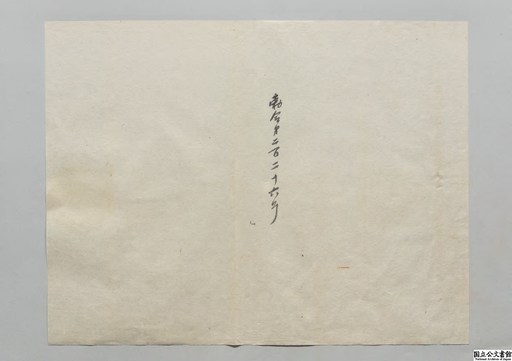 勅令第二百二十六号
国立公文書館
National Archives of Japan